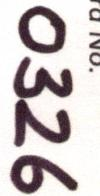 rd No.
0326